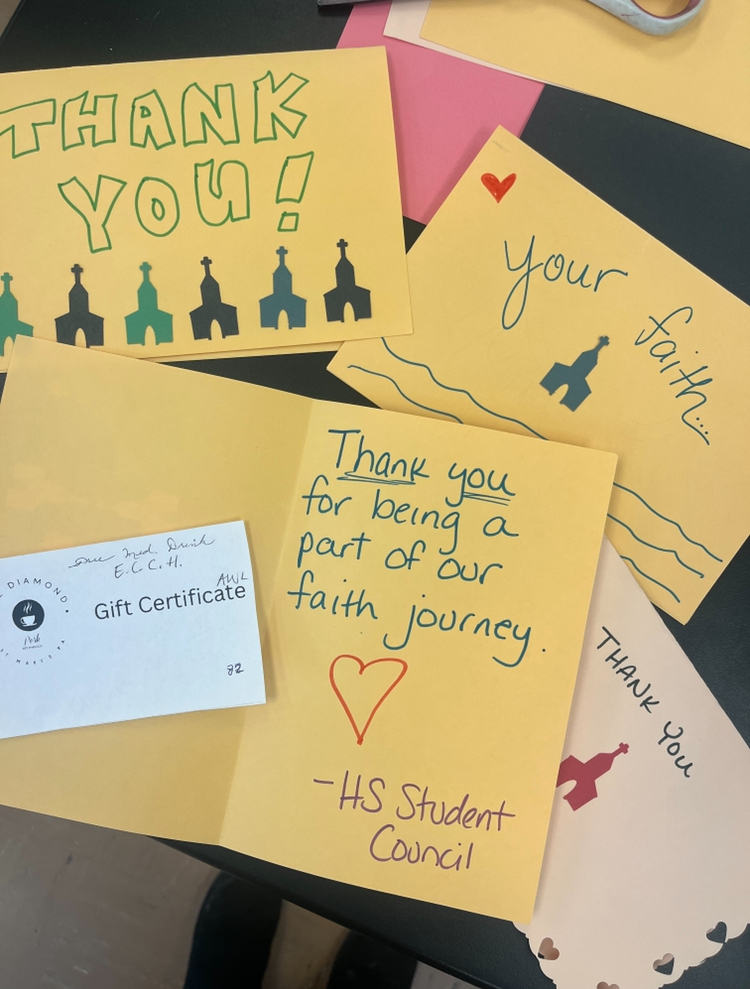 THANK
YOU!
your
faith...
Thank you
for being a
part of our
faith journey.
-HS Student
Council
One Med. Drink
E.C.C.H.
AWL
Gift Certificate
DIAMOND
82
THANK YOU